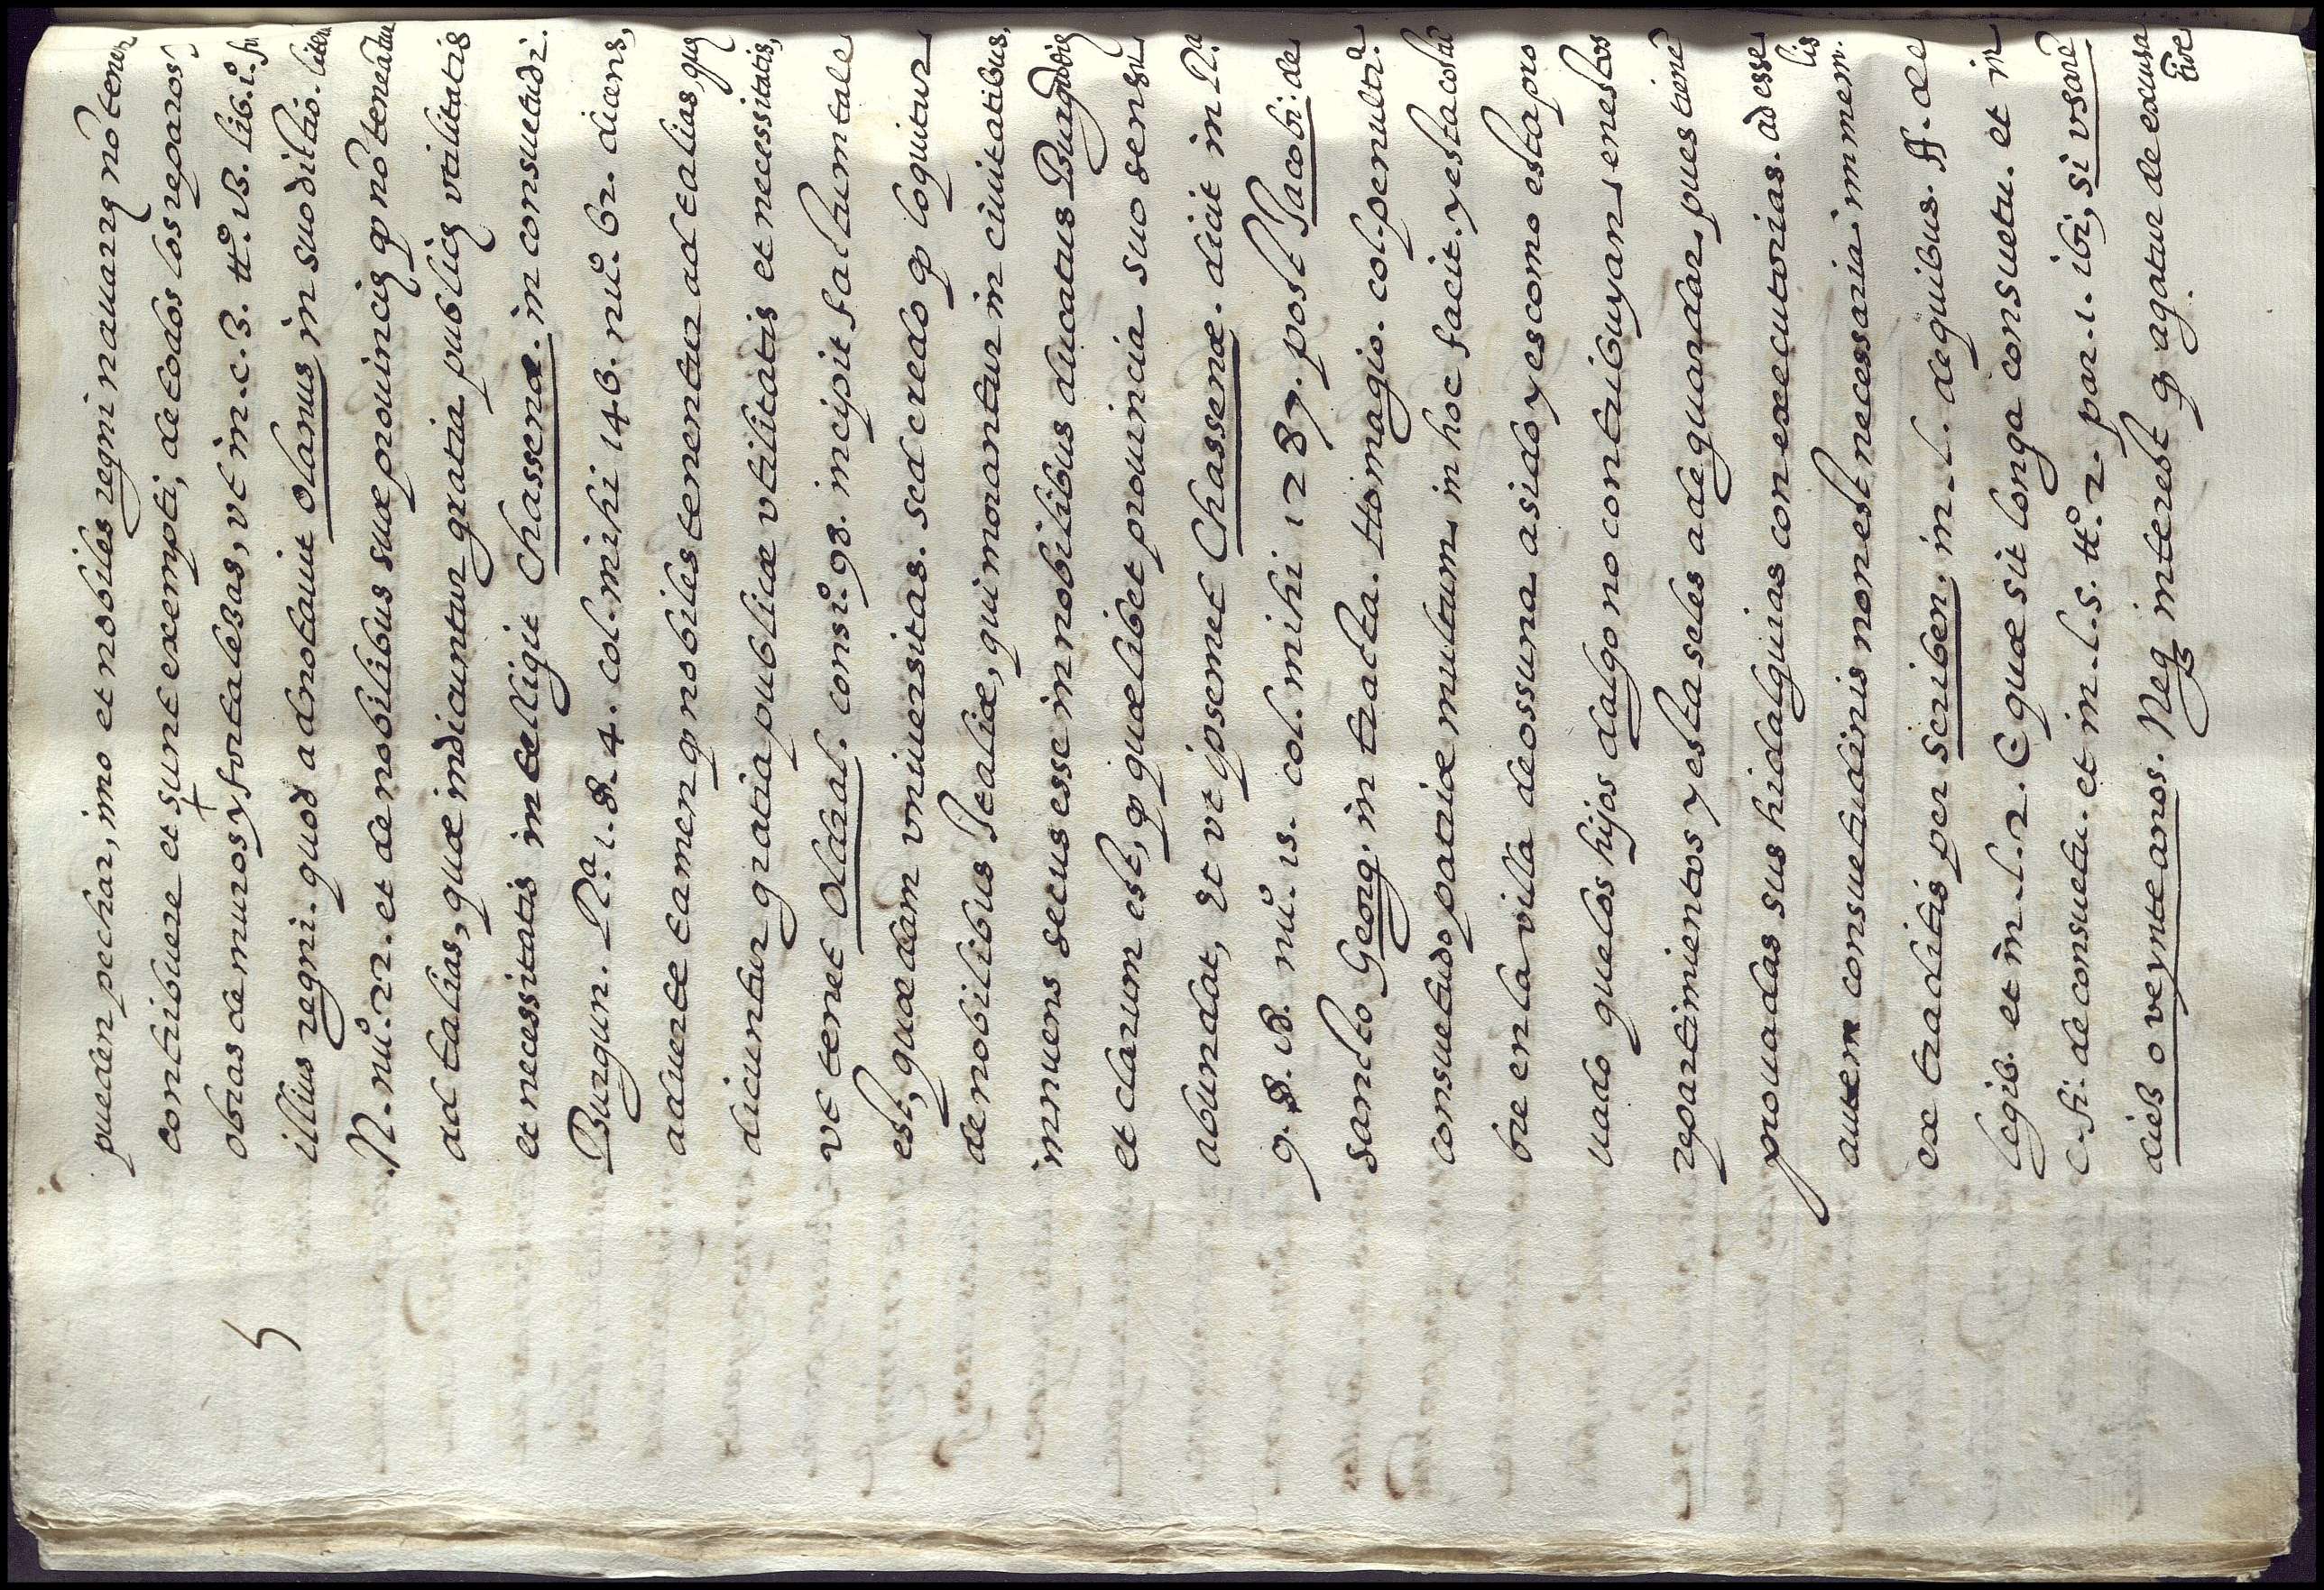 pueden pechar, imo et nobiles regni nauarrę nō tenen
contribuere et sunt exempti, de todos los reparos
obras de muros y fortalezas, vt in .c. 3. tt.º 18. lib. i. fu
illius regni. quod adnotauit Olanus in suo dilao. litera
.N. nu.º 22. et de nobilibus suæ prouincię q nō teneātur
ad talias, quæ indicuntur gratia publicę vtilitatis
et necessitatis intelligit Chassenæ. in consuetudi.
Burgun. R.ª 1. §. 4. col. mihi 146. nu.º 62. dicens,
aduerte tamen q nobiles tenentur ad talias, quę
dicuntur gratia publicæ vtilitatis et necessitatis,
vt tenet Oldral. consi.º 98. incipit factum tale
est, quædam vniuersitas. sed credo q loquitur
de nobilibus Italiæ, qui morantur in ciuitatibus,
innuens secus esse in nobilibus ducatus Burgūdię
et clarum est, q quælibet prouincia suo sensu
abundat, et vt ipsemet Chassenæ. dicit in R.ª
9. §. 18. nu.º 15. col. mihi 1287. post Jacobi: de
sancto Georg. in tracta. Homagio. col. penulti.ª
consuetudo patriæ multum in hoc facit. y esta costū
bre en la villa de ossuna a sido y es como esta pro
uado que los hijos dalgo no contribuyan en estos
repartimientos y esta seles a de guardar, pues tienē
prouadas sus hidalguias con executorias. ad esse
lis
autem consuetudinis non est necessaria immem.
ex traditis per scriben. in .l. de quibus. ff. de
legib. et in .l. 2. C quæ sit longa consuetu. et in
c. fi. de consuetu. et in .l. 5. tt.º 2. par. 1. ibi, si vsarē
diez o veynte anos. Neq interest q agatur de excusa
tiōe
5